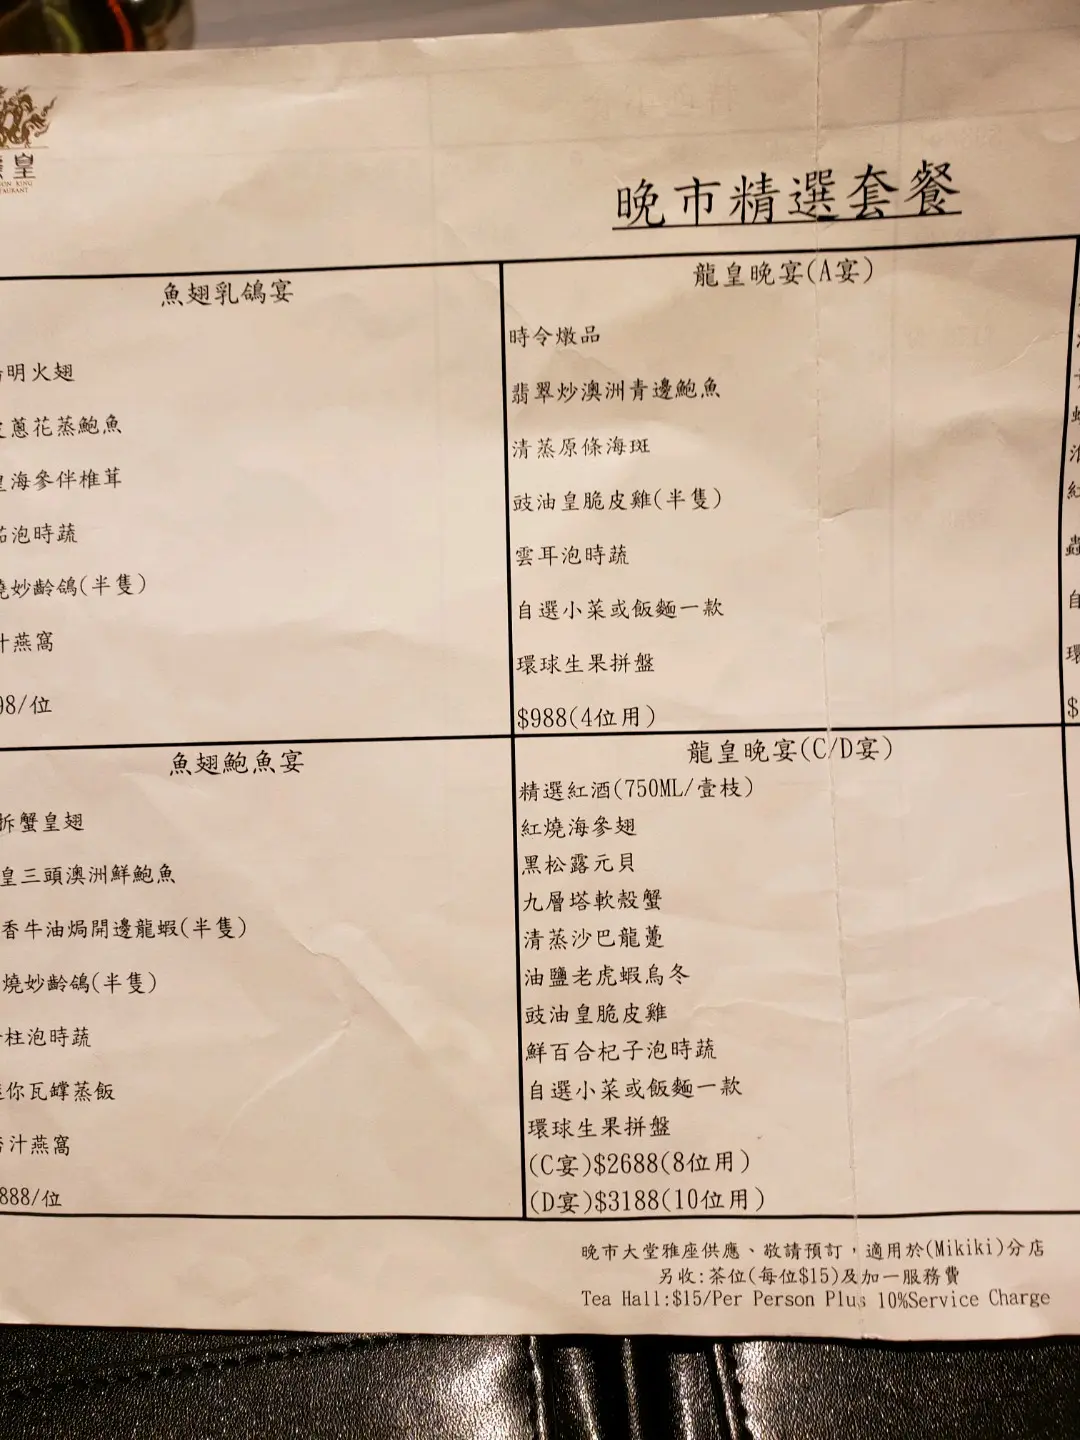 皇
晚市精選套餐
魚翅乳鴿宴
明火翅
蔥花蒸鮑魚
海參伴椎茸
泡時蔬
妙齡鴿(半隻)
汁燕窩
98/位
龍皇晚宴(A宴)
時令燉品
翡翠炒澳洲青邊鮑魚
清蒸原條海斑
豉油皇脆皮雞(半隻)
雲耳泡時蔬
自選小菜或飯麵一款
環球生果拼盤
$988(4位用)
魚翅鮑魚宴
拆蟹皇翅
皇三頭澳洲鮮鮑魚
香牛油焗開邊龍蝦(半隻)
燒妙齡鴿(半隻)
柱泡時蔬
你瓦罉蒸飯
汁燕窩
888/位
龍皇晚宴(C/D宴)
精選紅酒(750ML/壹枝)
紅燒海參翅
黑松露元貝
九層塔軟殼蟹
清蒸沙巴龍躉
油鹽老虎蝦烏冬
豉油皇脆皮雞
鮮百合杞子泡時蔬
自選小菜或飯麵一款
環球生果拼盤
(C宴)$2688(8位用)
(D宴)$3188(10位用)
紅
自
環
$
晚市大堂雅座供應、敬請預訂，適用於(Mikiki)分店
另收:茶位(每位$15)及加一服務費
Tea Hall:$15/Per Person Plus 10%Service Charge